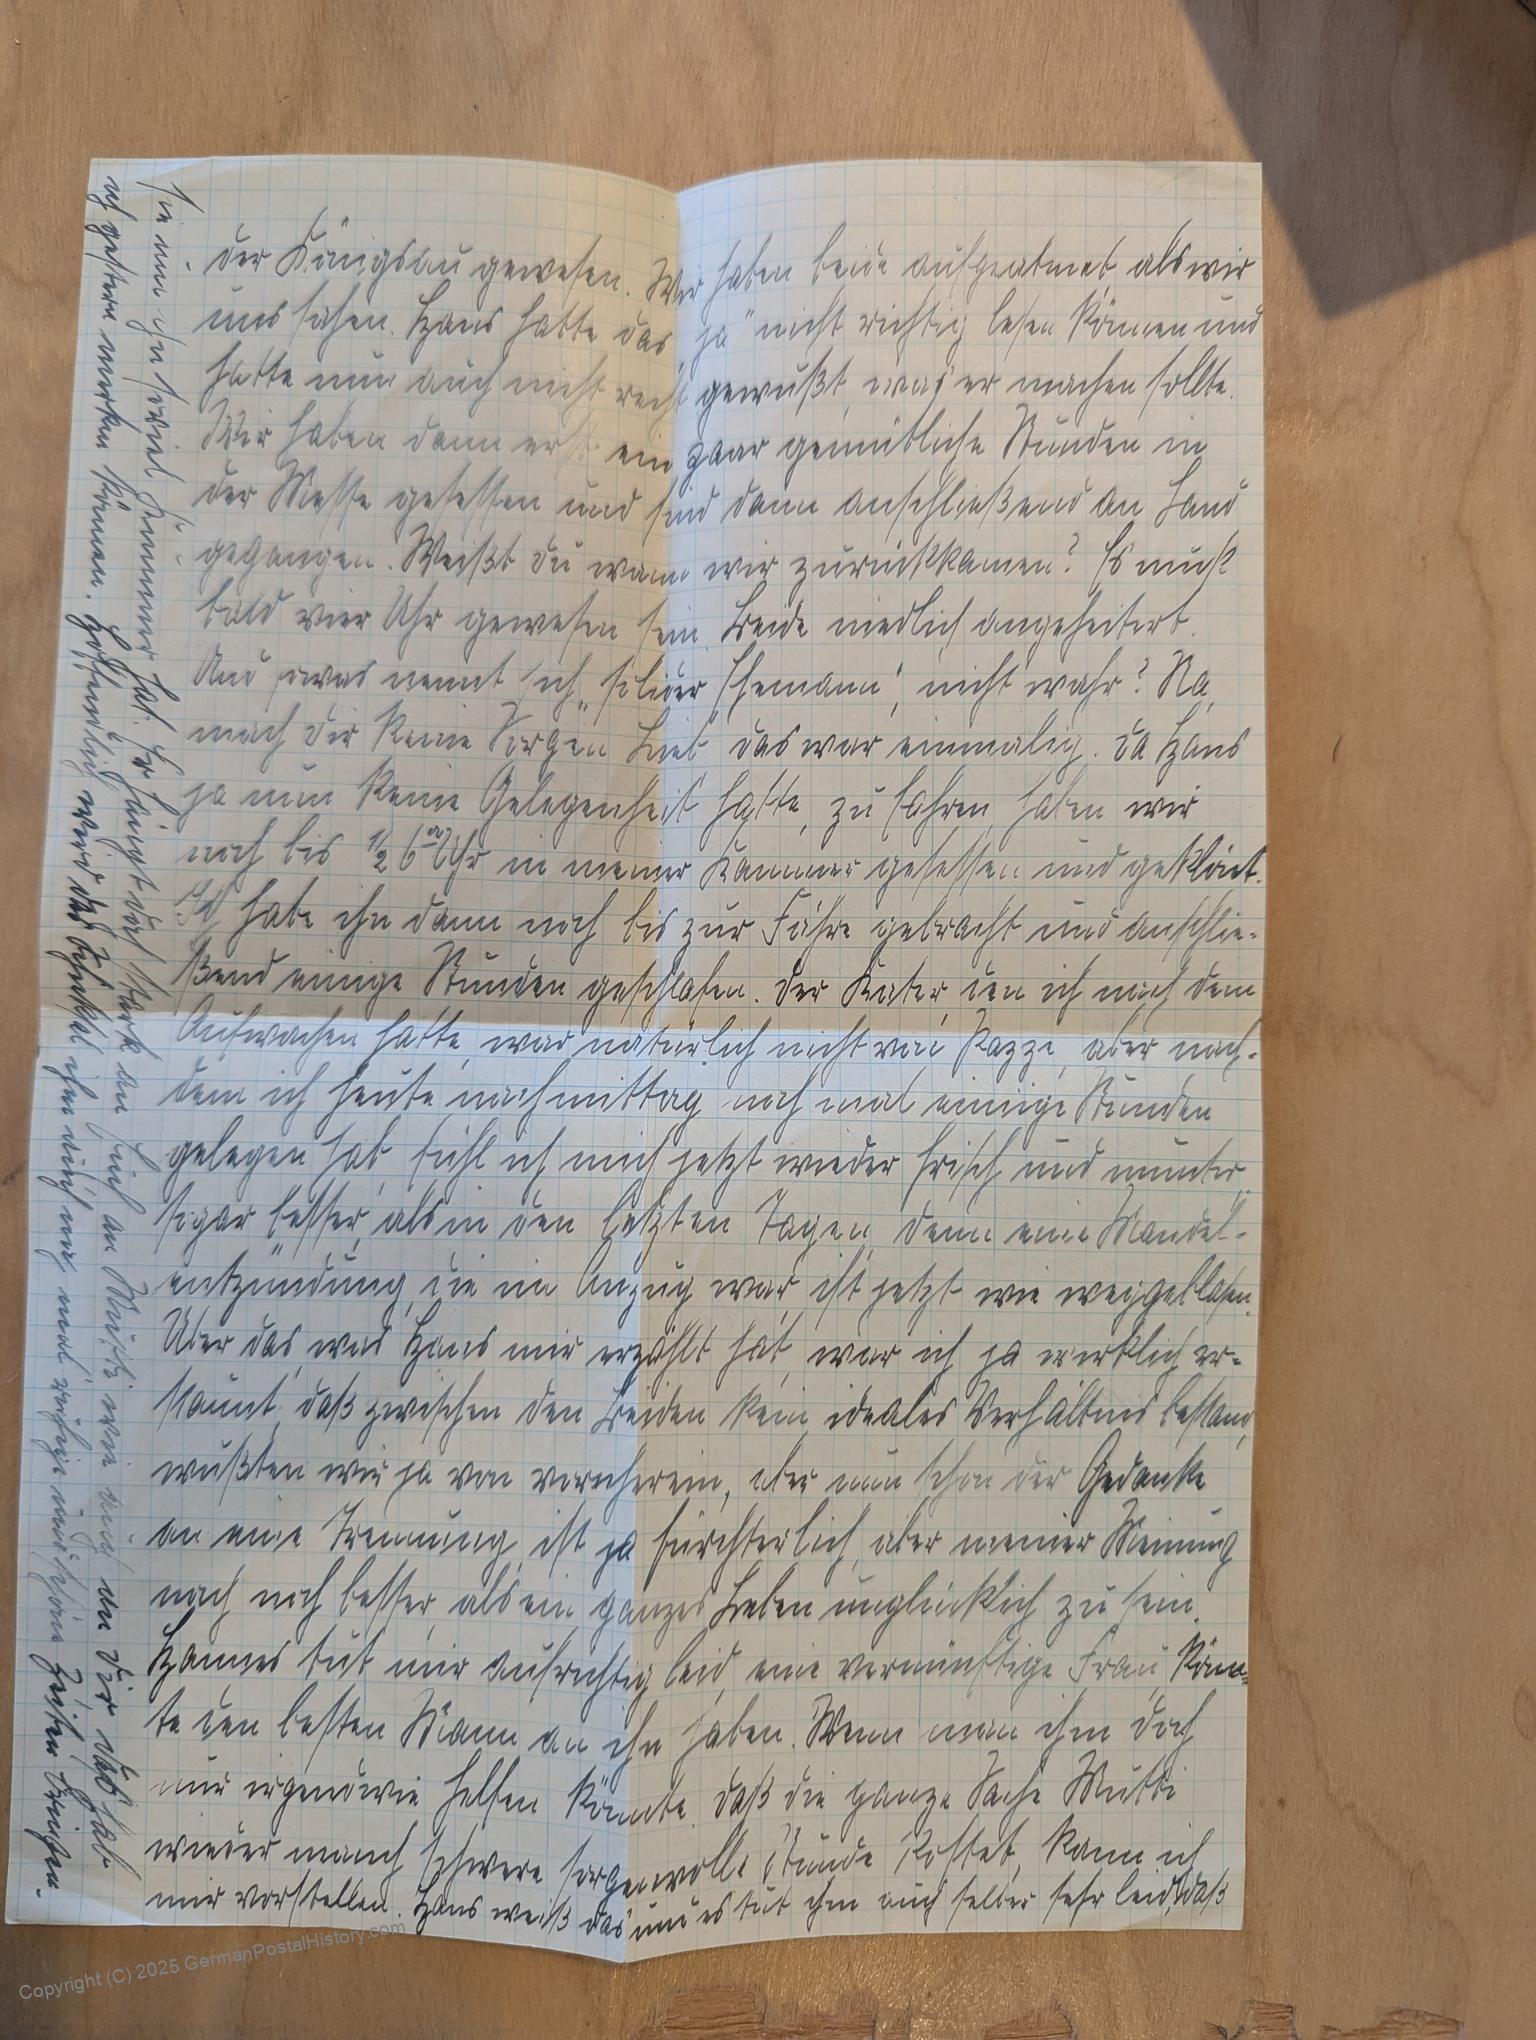 der Königsau gewesen. Wir haben beide aufgeatmet als wir
uns sahen. Hans hatte das „ja" nicht richtig lesen können und
hatte nun auch nicht recht gewußt, was er machen sollte.
Wir haben dann erst ein paar gemütliche Stunden in
der Messe gesessen und sind dann anschließend an Land
gegangen. Weißt du wann wir zurückkamen? Es muß
bald vier Uhr gewesen sein. Beide niedlich angeheitert.
Und sowas nennt sich „solider Ehemann", nicht wahr? Na,
mach dir keine Sorgen Lieb das war einmalig. Da Hans
ja nun keine Gelegenheit hatte, zu fahren haben wir
noch bis ½ 6 Uhr in meiner Kammer gesessen und geklönt.
Ich habe ihn dann noch bis zur Fähre gebracht und anschlie-
ßend einige Stunden geschlafen. Der Kater, den ich nach dem
Aufwachen hatte, war natürlich nicht von Pappe, aber nach-
dem ich heute nachmittag noch mal einige Stunden
gelegen hab, fühl ich mich jetzt wieder frisch und munter
sogar besser, als in den letzten Tagen, denn eine Mandel-
entzündung, die im Anzug war, ist jetzt wie weggeblasen.
Über das, was Hans mir erzählt hat, war ich ja wirklich er-
staunt, daß zwischen den Beiden kein ideales Verhältnis bestand,
wußten wir ja von vorneherein, aber nun schon der Gedanke
an eine Trennung, ist ja fürchterlich, aber meiner Meinung
nach noch besser, als ein ganzes Leben unglücklich zu sein.
Hannes tut mir aufrichtig leid, eine vernünftige Frau könn-
te den besten Mann an ihn haben. Wenn man ihm doch
nur irgendwie helfen könnte. Daß die ganze Sache Mutti
wieder manch schwere sorgenvolle Stunde kostet, kann ich
mir vorstellen. Hans weiß das und es tut ihm auch selber sehr leid, daß
sie um ihn soviel Kummer hat. Er hängt doch stark an und an Mutti wie auch an dir das hab
ich gestern merken können. Hoffentlich wird das Schicksal ihm auch noch mal ruhige und schöne Zeiten bringen.
Copyright (C) 2025 GermanPostalHistory.com